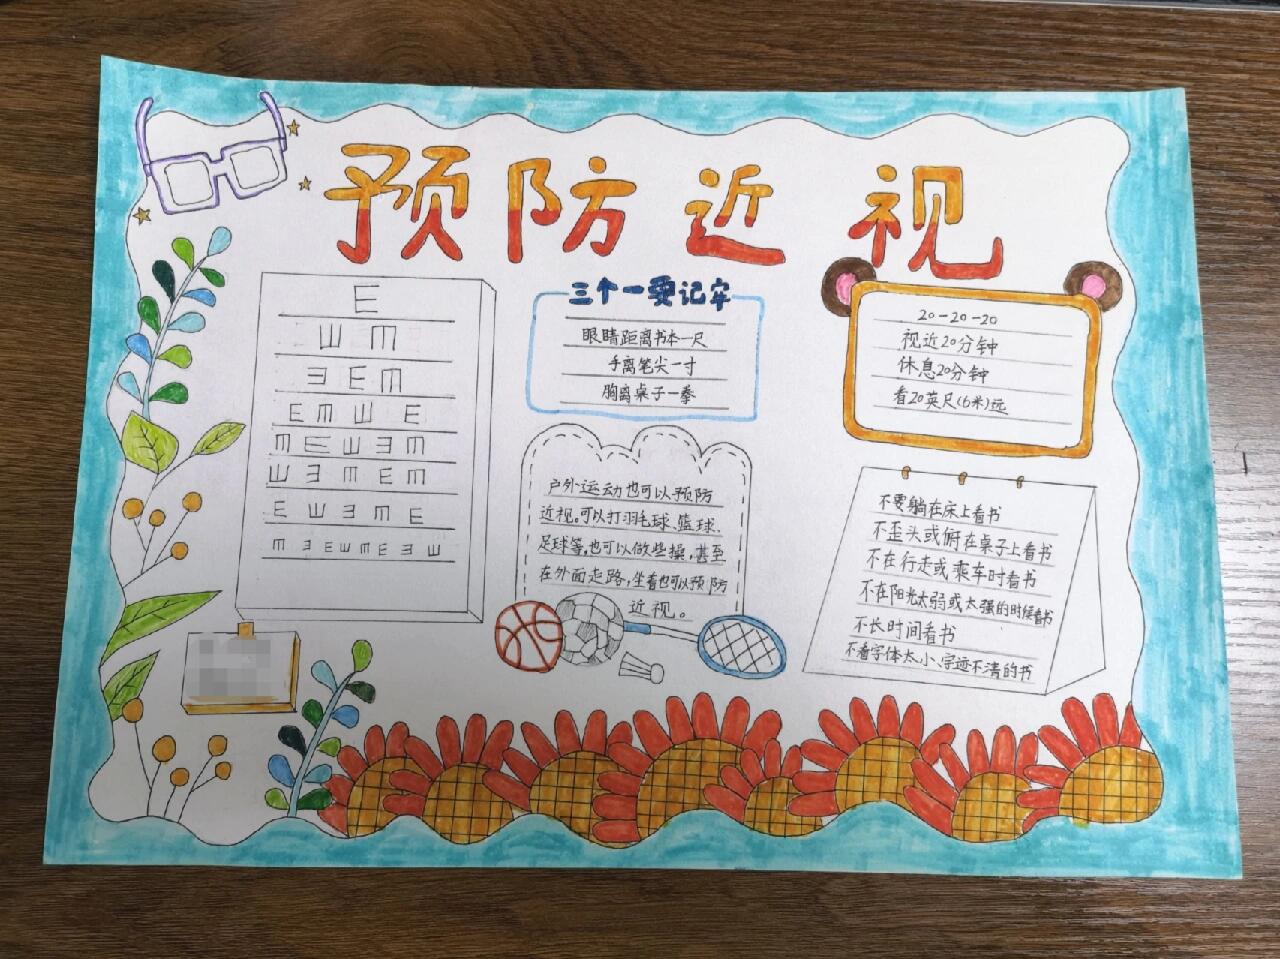 预防近视
E
三个一要记牢
眼睛距离书本一尺
手离笔尖一寸
胸离桌子一拳
20-20-20
视近20分钟
休息20分钟
看20英尺(6米)远
户外运动也可以预防
近视。可以打羽毛球、篮球、
足球等,也可以做些操,甚至
在外面走路,坐着也可以预防
近视。
不要躺在床上看书
不歪头或俯在桌子上看书
不在行走或乘车时看书
不在阳光太弱或太强的时候看书
不长时间看书
不看字体太小、字迹不清的书